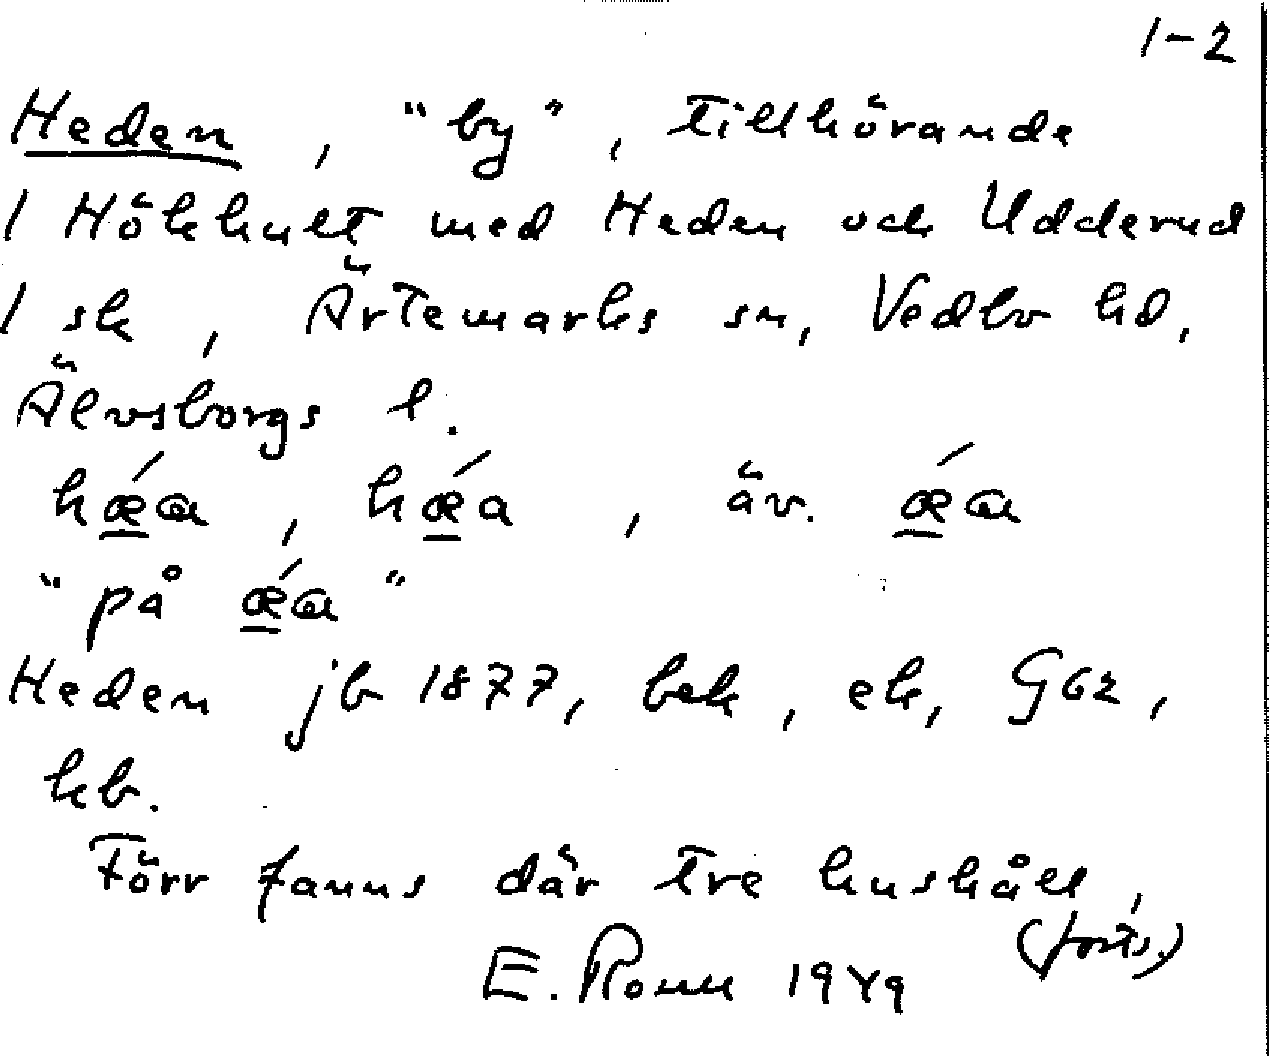 1-2
Heden, "by", tillhörande
1 Hökhult med Heden och Udderud
1 sk, Ärtemarks sn, Vedbo hd,
Älvsborgs l.
hǽa, hǽa, äv. ǽa
"på ǽa"
Heden jb 1877, bek, ek, G62,
kb.
Förr fanns där tre hushåll,
(forts.)
E. Ronn 1949